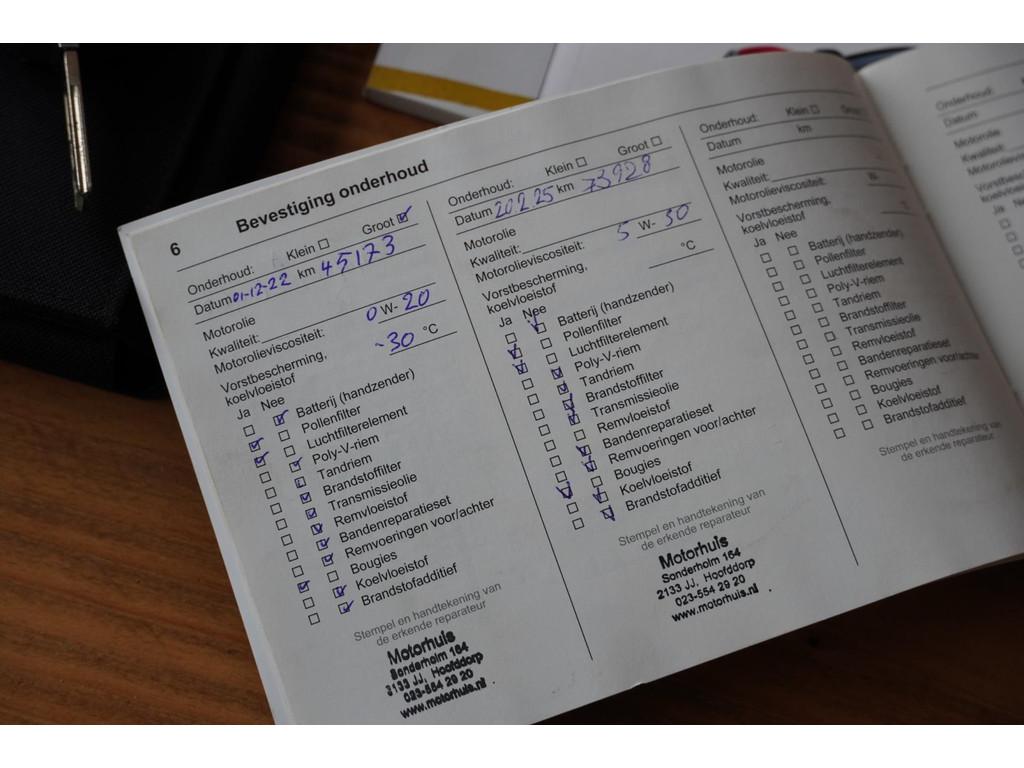 6 Bevestiging onderhoud
Onderhoud: Klein ☐ Groot ☑
Datum 01-12-22 km 45173
Motorolie
Kwaliteit:
Motorolieviscositeit: 0 W- 20
Vorstbescherming,
koelvloeistof -30 °C
Ja Nee
Batterij (handzender)
Pollenfilter
Luchtfilterelement
Poly-V-riem
Tandriem
Brandstoffilter
Transmissieolie
Remvloeistof
Bandenreparatieset
Remvoeringen voor/achter
Bougies
Koelvloeistof
Brandstofadditief
Stempel en handtekening van
de erkende reparateur
Motorhuis
Sonderholm 164
2133 JJ, Hoofddorp
023-554 29 20
www.motorhuis.nl
Onderhoud: Klein ☐ Groot ☐
Datum 20 2 25 km 73928
Motorolie
Kwaliteit:
Motorolieviscositeit: 5 W- 30
Vorstbescherming,
koelvloeistof °C
Ja Nee
Batterij (handzender)
Pollenfilter
Luchtfilterelement
Poly-V-riem
Tandriem
Brandstoffilter
Transmissieolie
Remvloeistof
Bandenreparatieset
Remvoeringen voor/achter
Bougies
Koelvloeistof
Brandstofadditief
Stempel en handtekening van
de erkende reparateur
Motorhuis
Sonderholm 164
2133 JJ, Hoofddorp
023-554 29 20
www.motorhuis.nl
Onderhoud: Klein ☐ Groot
Datum km
Motorolie
Kwaliteit:
Motorolieviscositeit: W-
Vorstbescherming,
koelvloeistof °C
Ja Nee
Batterij (handzender)
Pollenfilter
Luchtfilterelement
Poly-V-riem
Tandriem
Brandstoffilter
Transmissieolie
Remvloeistof
Bandenreparatieset
Remvoeringen voor/achter
Bougies
Koelvloeistof
Brandstofadditief
Stempel en handtekening van
de erkende reparateur
Onderhoud:
Datum
Motorolie
Kwaliteit:
Ja